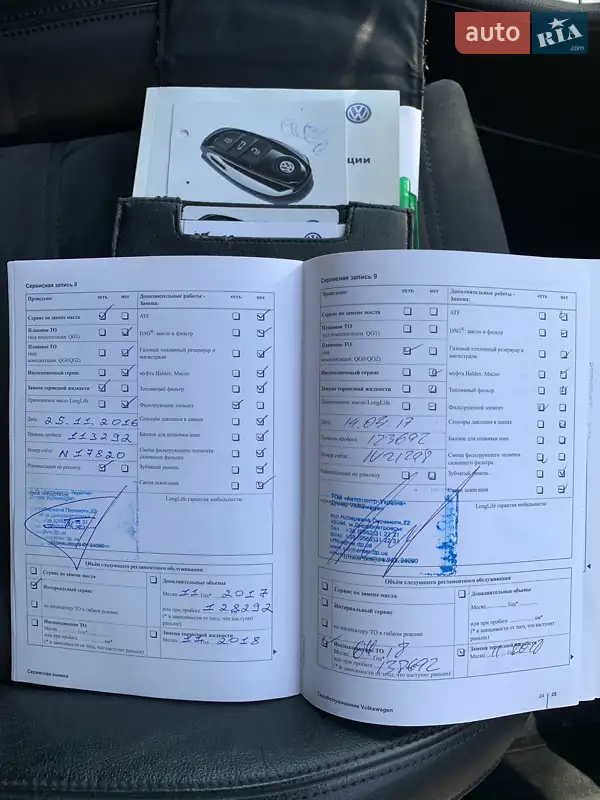 auto
RIA
.com
ции
Сервисная запись 8
Проведено:
есть
нет
Дополнительные работы -
Замена:
есть
нет
Сервис по замене масла
ATF
Плановое ТО
(код комплектации: QG1)
DSG®: масло и фильтр
Плановое ТО
(код
комплектации: QG0/QG2)
Газовый топливный резервуар и
магистрали
Инспекционный сервис
муфта Haldex: Масло
Замена тормозной жидкости
Топливный фильтр
Применяемое масло LongLife
Фильтрующий элемент
Дата: 25.11.2016
Сенсоры давления в шинах
Уровень пробега: 113292
Баллон для подкачки шин
Номер счёта: N 17820
Смена фильтрующего элемента
салонного фильтра
Рекомендации по ремонту
Зубчатый ремень
Свечи зажигания
LongLife гарантия мобильности:
Объём следующего регламентного обслуживания
Сервис по замене масла
Дополнительные объемы
Месяц 11 Год* 2017
Интервальный сервис
или при пробеге 128292
(* в зависимости от того, что наступит
раньше)
по индикатору ТО в гибком режиме
Инспекционное ТО
Месяц Год*
или при пробеге км*
(* в зависимости от того, что наступит раньше)
Замена тормозной жидкости
Месяц 11 2018
Сервисная книжка
Сервисная запись 9
Проведено:
есть
нет
Дополнительные работы -
Замена:
есть
нет
Сервис по замене масла
ATF
Плановое ТО
(код комплектации: QG1)
DSG®: масло и фильтр
Плановое ТО
(код
комплектации: QG0/QG2)
Газовый топливный резервуар и
магистрали
Инспекционный сервис
муфта Haldex: Масло
Замена тормозной жидкости
Топливный фильтр
Применяемое масло LongLife
Фильтрующий элемент
Дата: 14.04.17
Сенсоры давления в шинах
Уровень пробега: 123692
Баллон для подкачки шин
Номер счёта: N 21298
Смена фильтрующего элемента
салонного фильтра
Рекомендации по ремонту
Зубчатый ремень
Свечи зажигания
LongLife гарантия мобильности:
ТОВ «Автоцентр-Україна»
Дилер Volkswagen
вул. Набережна Перемоги,22
Объём следующего регламентного обслуживания
Сервис по замене масла
Дополнительные объемы
Месяц Год*
Интервальный сервис
или при пробеге км*
(* в зависимости от того, что наступит
раньше)
по индикатору ТО в гибком режиме
Инспекционное ТО
Месяц 04 Год* 18
или при пробеге 138692
(* в зависимости от того, что наступит раньше)
Замена тормозной жидкости
Месяц 11
Техобслуживание Volkswagen
24
25